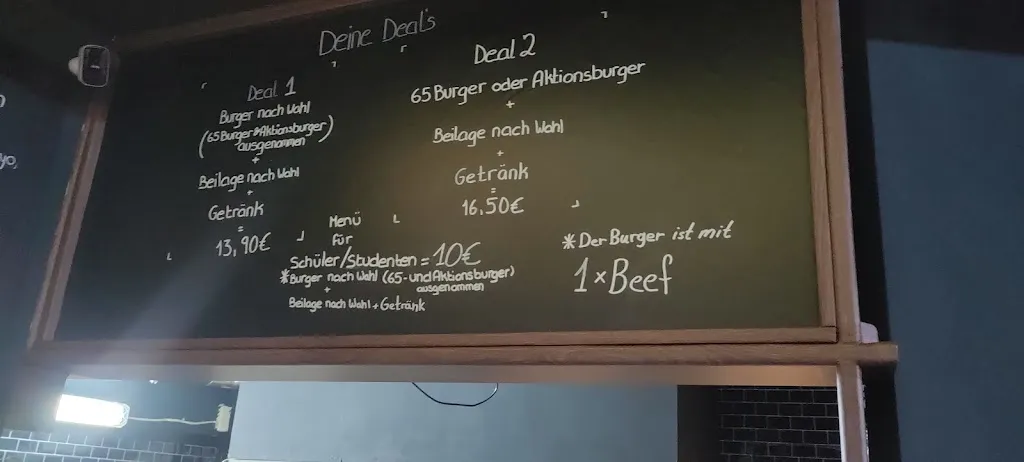 Deine Deal's
Deal 1
Burger nach Wahl
(65 Burger & Aktionsburger)
ausgenommen
+
Beilage nach Wahl
+
Getränk
=
13,90€
Deal 2
65 Burger oder Aktionsburger
+
Beilage nach Wahl
+
Getränk
=
16,50€
Menü
für
Schüler/Studenten = 10€
*Burger nach Wahl (65-und Aktionsburger)
ausgenommen
+
Beilage nach Wahl + Getränk
*Der Burger ist mit
1×Beef
yo,